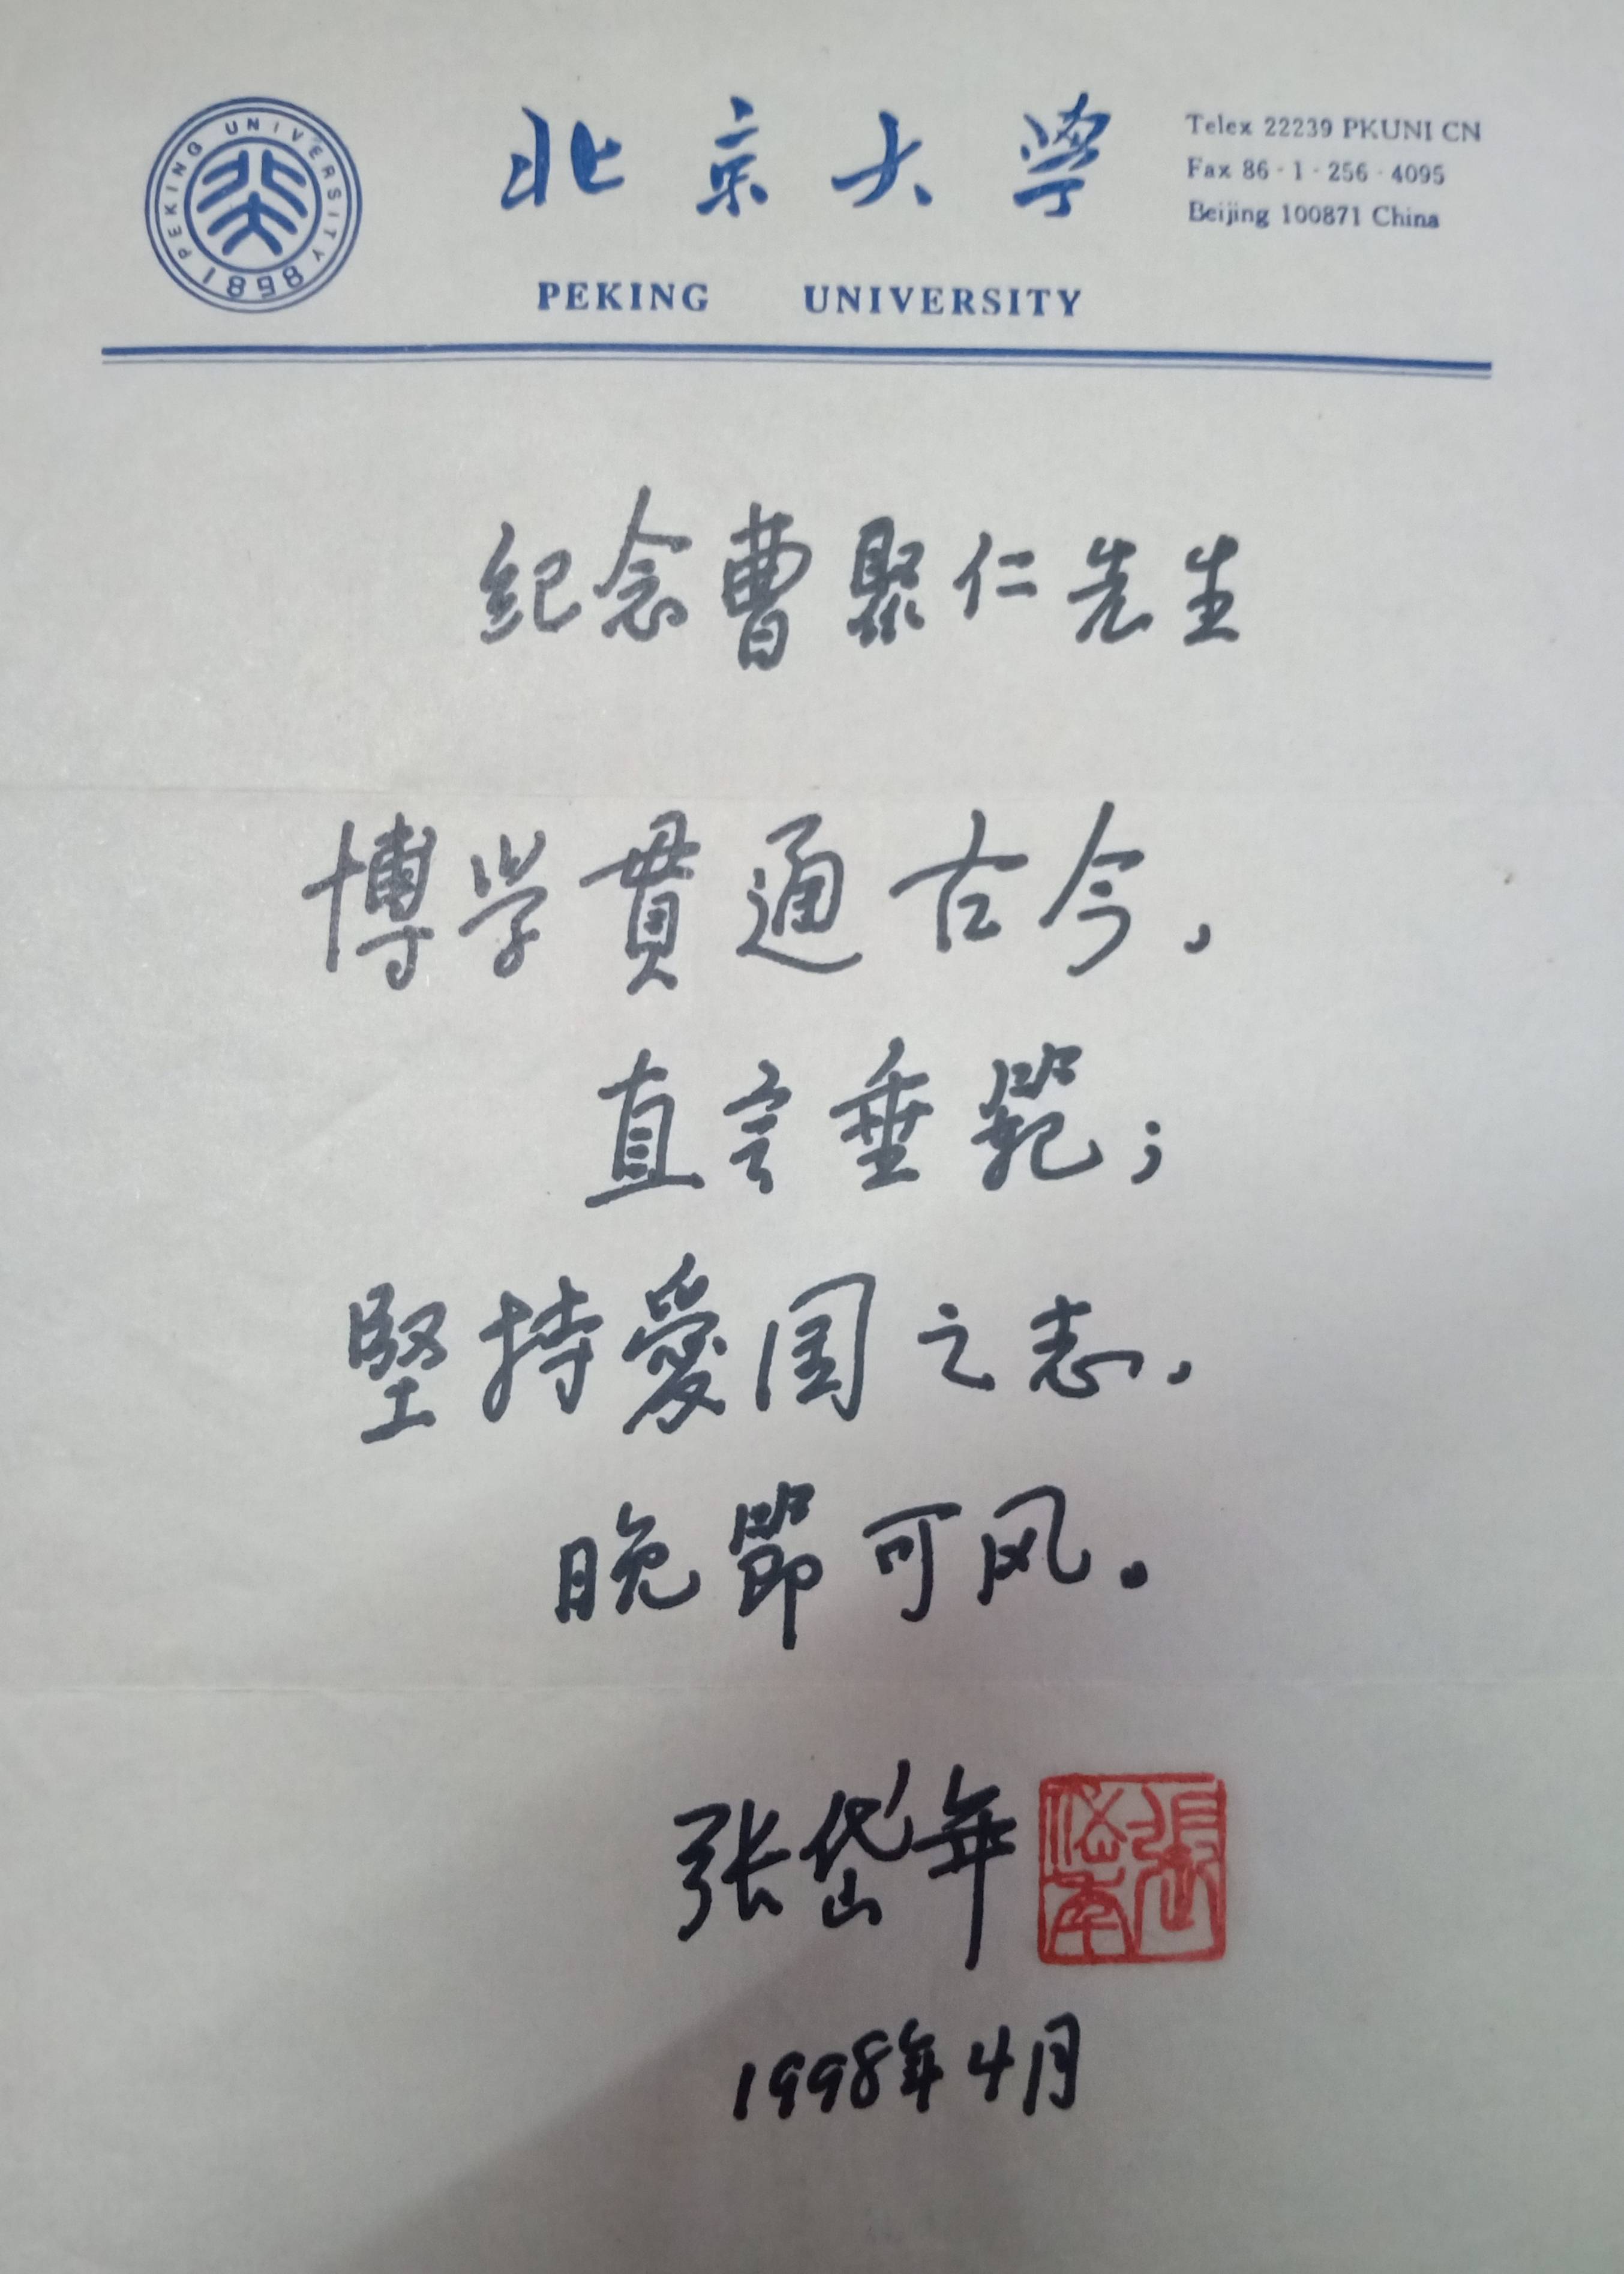 PEKING UNIVERSITY
1898
北京大学
PEKING UNIVERSITY
Telex 22239 PKUNI CN
Fax 86-1-256-4095
Beijing 100871 China
紀念曹聚仁先生
博学貫通古今，
直言垂範；
堅持愛国之志，
晚節可风。
张岱年
張岱年
1998年4月